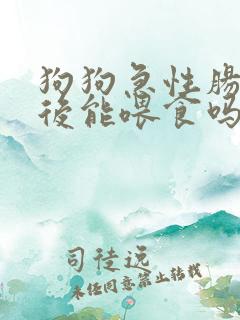 狗狗急性腸
後能喂食吗
司徒远
未经同意禁止转载